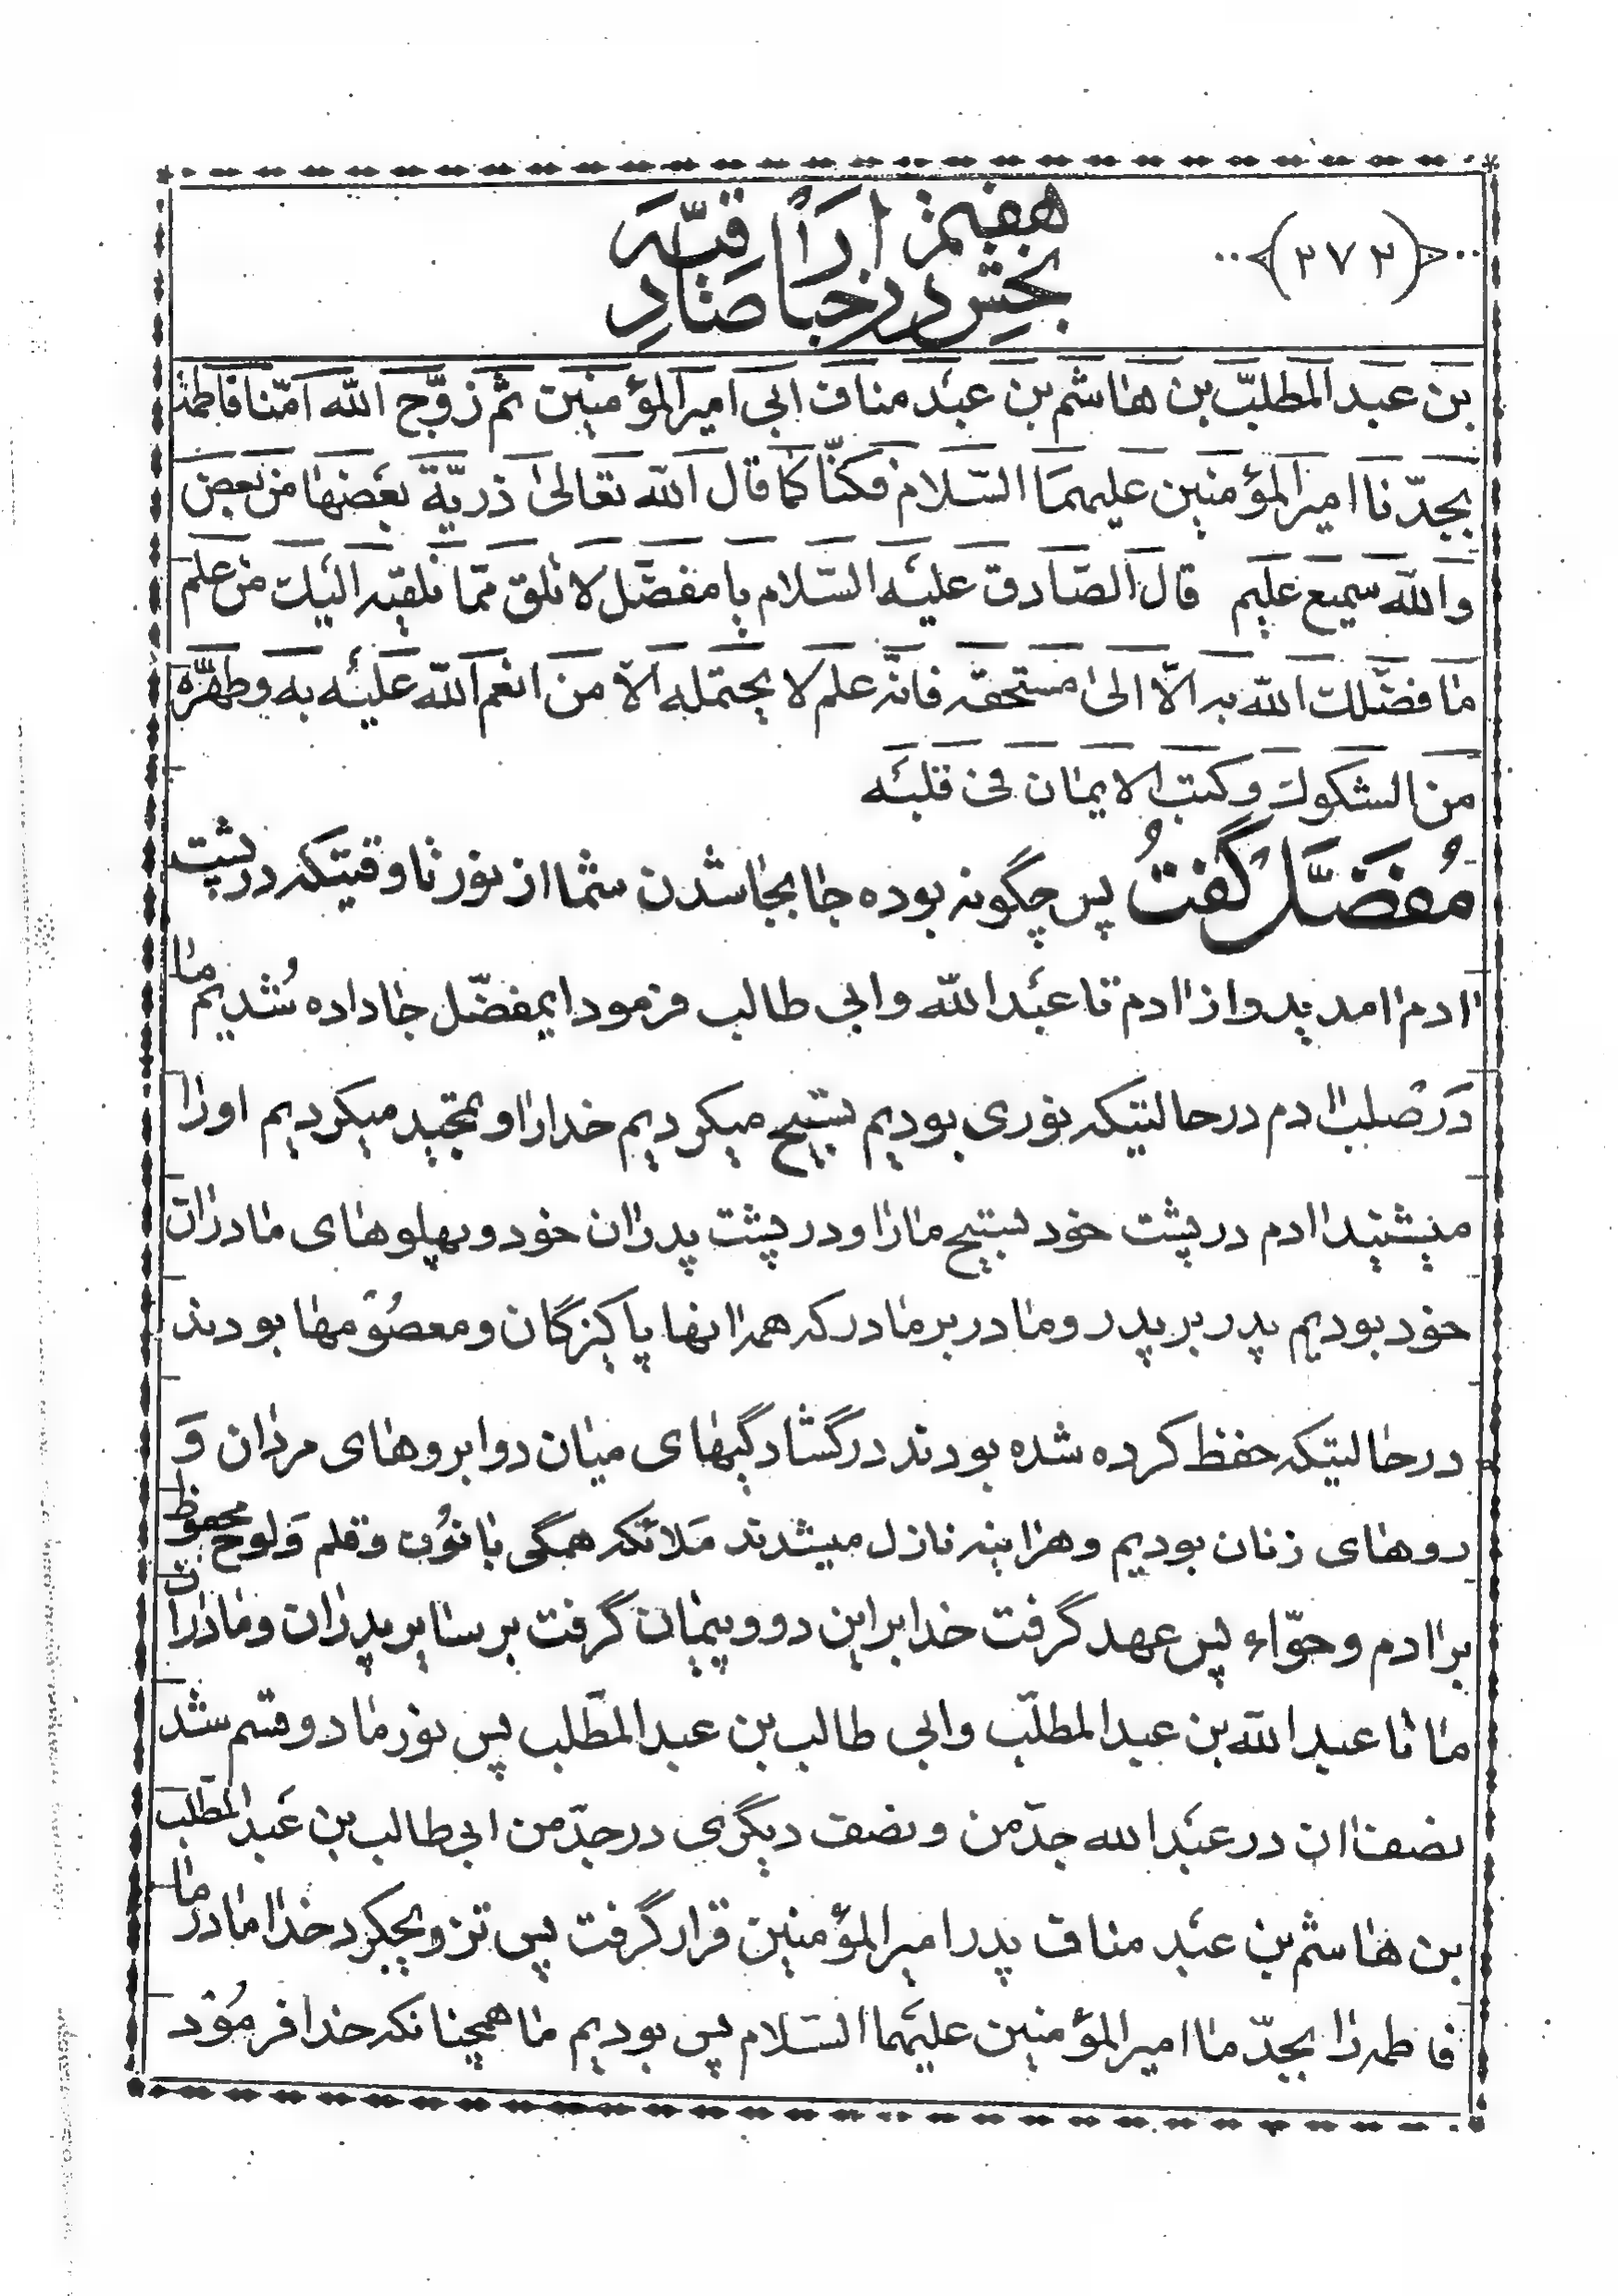 (٢٧٢)
بخش هفتم در اخبار صادقیّه
بن عبد المطلّب بن هاشم بن عبد مناف ابی امیر المؤمنین ثم زوّج الله امّنا فاطمة
بجدّنا امیر المؤمنین علیهما السّلام فکنّا کما قال الله تعالیٰ ذریّة بعضها من بعض
والله سمیع علیم قال الصّادق علیه السّلام یا مفضّل لا تلق ممّا نلقیه الیک من علم
ما فضّلک الله به الّا الیٰ مستحقه فانّه علم لا یحتمله الّا من انعم الله علیه به وطهّره
من الشکوک وکتب الایمان فی قلبه
مُفضَّل گفتُ پس چگونه بوده جابجا شدن شما از نور تا وقتیکه در پشت
اادم اامد پدو از اادم تا عبد الله وابی طالب فرمود ایمفضّل جا داده شُدیم ما
در صلب اادم در حالتیکه نوری بودیم تسبیح میکردیم خدا را و تمجید میکردیم او را
میشنید اادم در پشت خود تسبیح ما را و در پشت پدران خود و پهلوهای مادران
خود بودیم پدر بر پدر و مادر بر مادر که همه اانها پاکیزگان و معصُومها بودند
در حالتیکه حفظ کرده شده بودند در گشادگیهای میان دو ابروهای مردان وَ
روهای زنان بودیم و هراینه نازل میشدند مَلائکه همگی با نوُن و قلم وَلوح محفوظ
بر اادم و حوّاء پس عهد گرفت خدا بر این دو و پیمان گرفت بر سایر پدران و مادران
ما تا عبد الله بن عبد المطلّب وابی طالب بن عبد المطّلب پس نور ما دو قسم شد
نصف اان در عبد الله جدّ من و نصف دیگری در جدّ من ابی طالب بن عَبد المطّلب
بن هاشم بن عبد مناف پدر امیر المؤمنین قرار گرفت پس تزویجکرد خدا مادر ما
فاطمه را بجدّ ما امیر المؤمنین علیهما السّلام پس بودیم ما همچنانکه خدا فرمُود